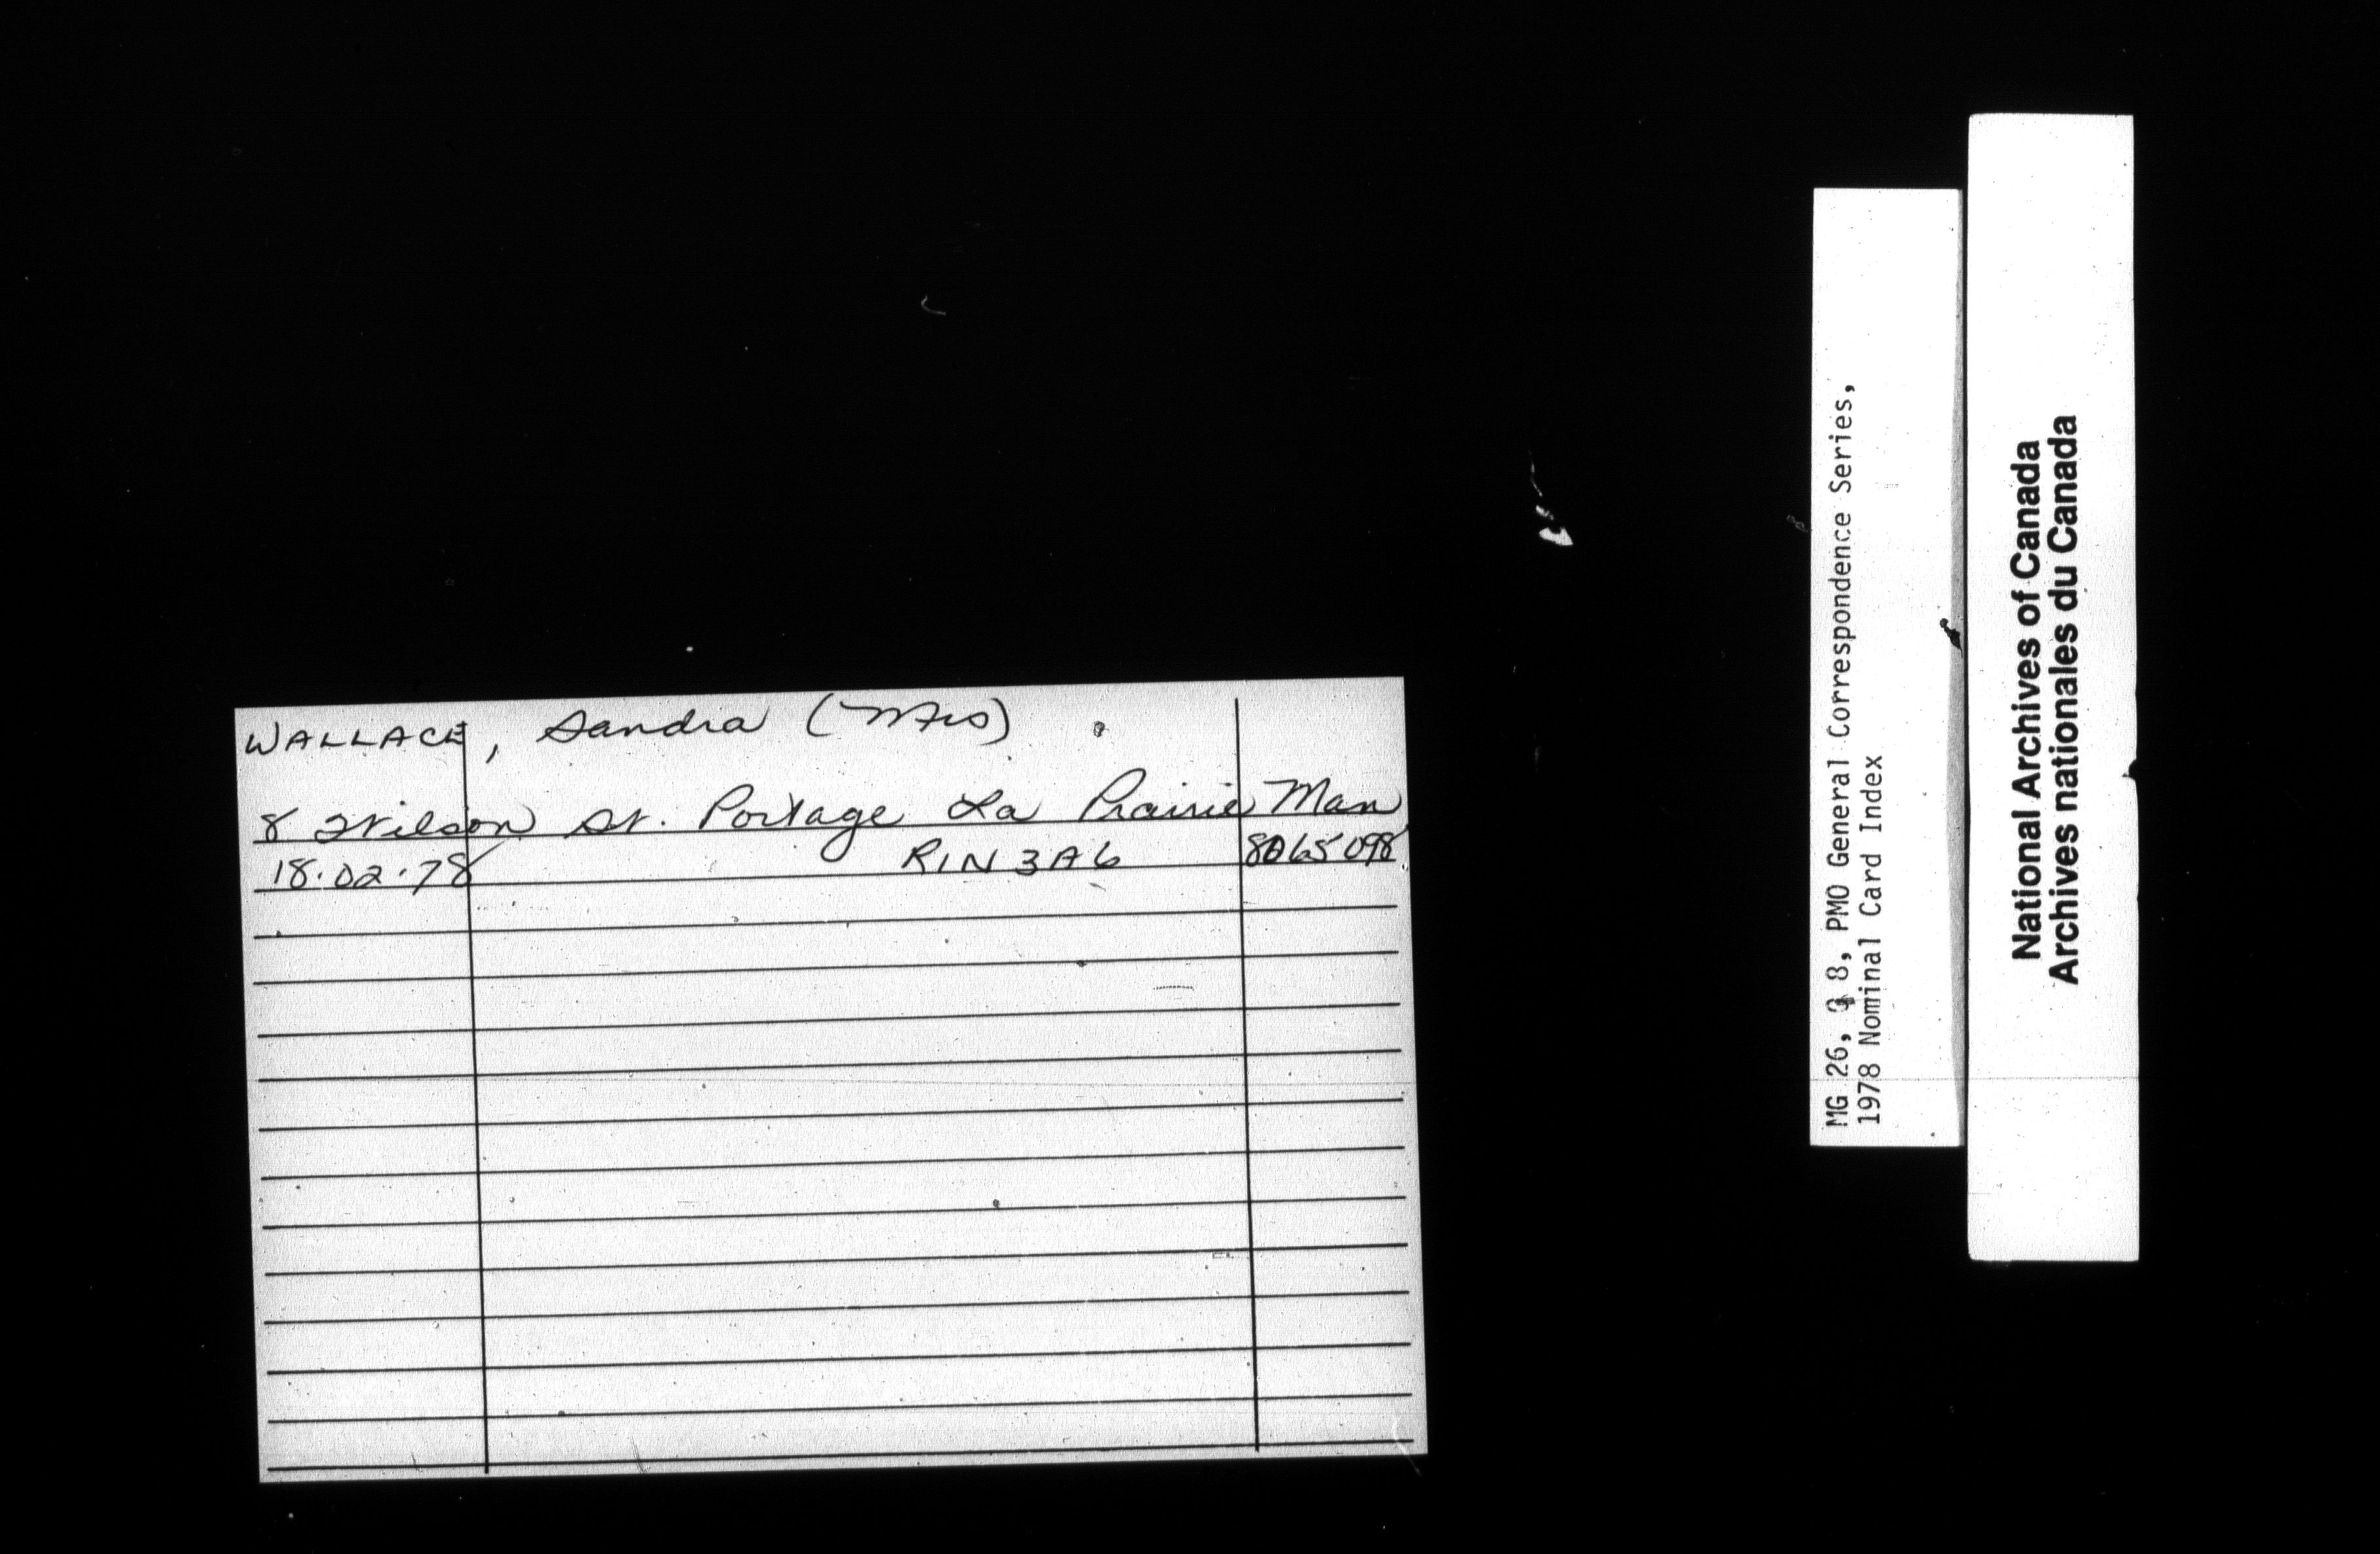 WALLACE, Sandra (Mrs)
8 Wilson St. Portage La Prairie Man
18.02.78 R1N 3A6 8065098
MG 26, 8, PMO General Correspondence Series,
1978 Nominal Card Index
National Archives of Canada
Archives nationales du Canada